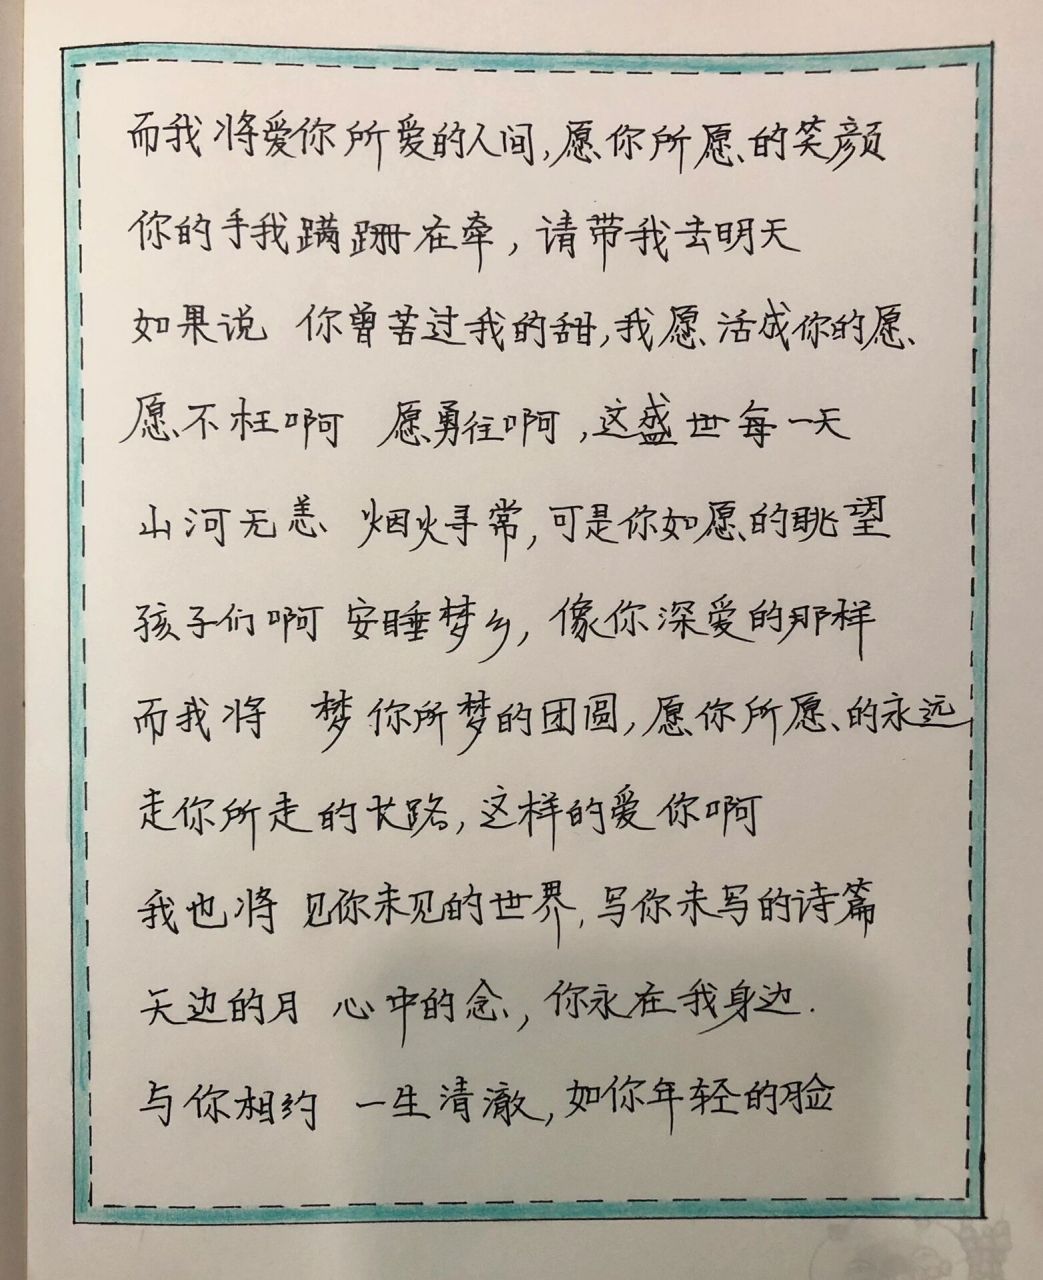 而我将爱你所爱的人间,愿你所愿的笑颜
你的手我蹒跚在牵,请带我去明天
如果说 你曾苦过我的甜,我愿活成你的愿
愿不枉啊 愿勇往啊,这盛世每一天
山河无恙 烟火寻常,可是你如愿的眺望
孩子们啊 安睡梦乡,像你深爱的那样
而我将 梦你所梦的团圆,愿你所愿的永远
走你所走的长路,这样的爱你啊
我也将 见你未见的世界,写你未写的诗篇
天边的月 心中的念,你永在我身边.
与你相约 一生清澈,如你年轻的脸